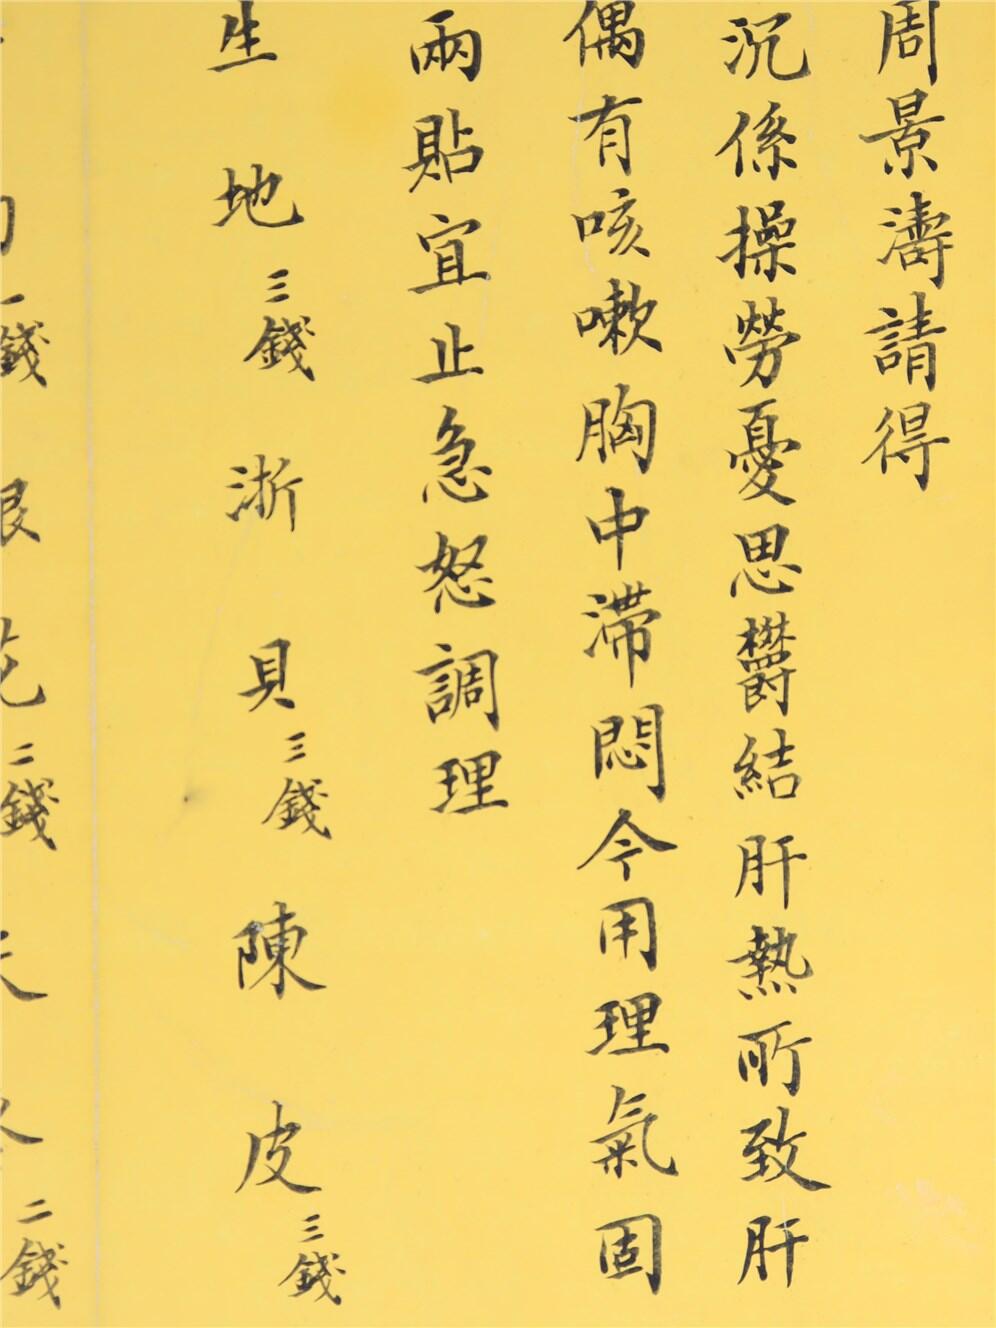 周景濤請得
沉係操勞憂思鬱結肝熱所致肝
偶有咳嗽胸中滯悶今用理氣固
兩貼宜止急怒調理
生地三錢浙貝三錢陳皮三錢
一錢銀花二錢天冬二錢